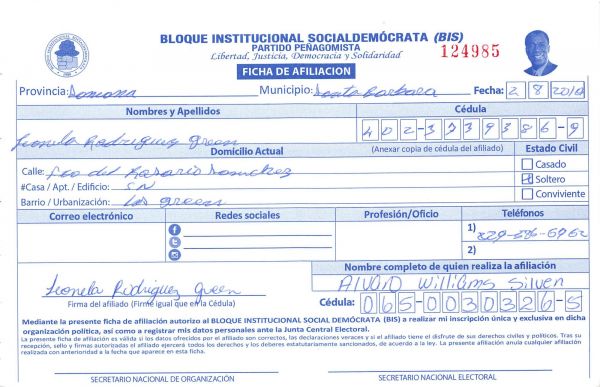 BLOQUE INSTITUCIONAL SOCIALDEMÓCRATA (BIS)
PARTIDO PEÑAGOMISTA
Libertad, Justicia, Democracia y Solidaridad
124985
FICHA DE AFILIACION
Provincia: Samana Municipio: Santa Barbara Fecha: 2 8 2019
Nombres y Apellidos Cédula
Leonela Rodriguez Green 402-3739386-9
Domicilio Actual (Anexar copia de cédula del afiliado) Estado Civil
Calle: Fco del Rosario Sanchez Casado
#Casa / Apt. / Edificio: SN Soltero
Barrio / Urbanización: Los green Conviviente
Correo electrónico Redes sociales Profesión/Oficio Teléfonos
1) 829-686-6962
2)
Nombre completo de quien realiza la afiliación
Leonela Rodriguez Green Alvaro Williams Silven
Firma del afiliado (Firme igual que en la Cédula) Cédula: 065-0030326-5
Mediante la presente ficha de afiliación autorizo al BLOQUE INSTITUCIONAL SOCIAL DEMÓCRATA (BIS) a realizar mi inscripción única y exclusiva en dicha
organización política, así como a registrar mis datos personales ante la Junta Central Electoral.
La presente ficha de afiliación es válida si los datos ofrecidos por el afiliado son correctos, las declaraciones veraces y si el afiliado tiene el disfrute de sus derechos civiles y políticos. Tras su
recepción, sello y firmas autorizadas el afiliado ejercerá todos los derechos y los deberes estatutariamente sancionados, de acuerdo a la ley. La presente afiliación anula cualquier afiliación
realizada con anterioridad a la fecha que aparece en esta ficha.
SECRETARIO NACIONAL DE ORGANIZACIÓN SECRETARIO NACIONAL ELECTORAL